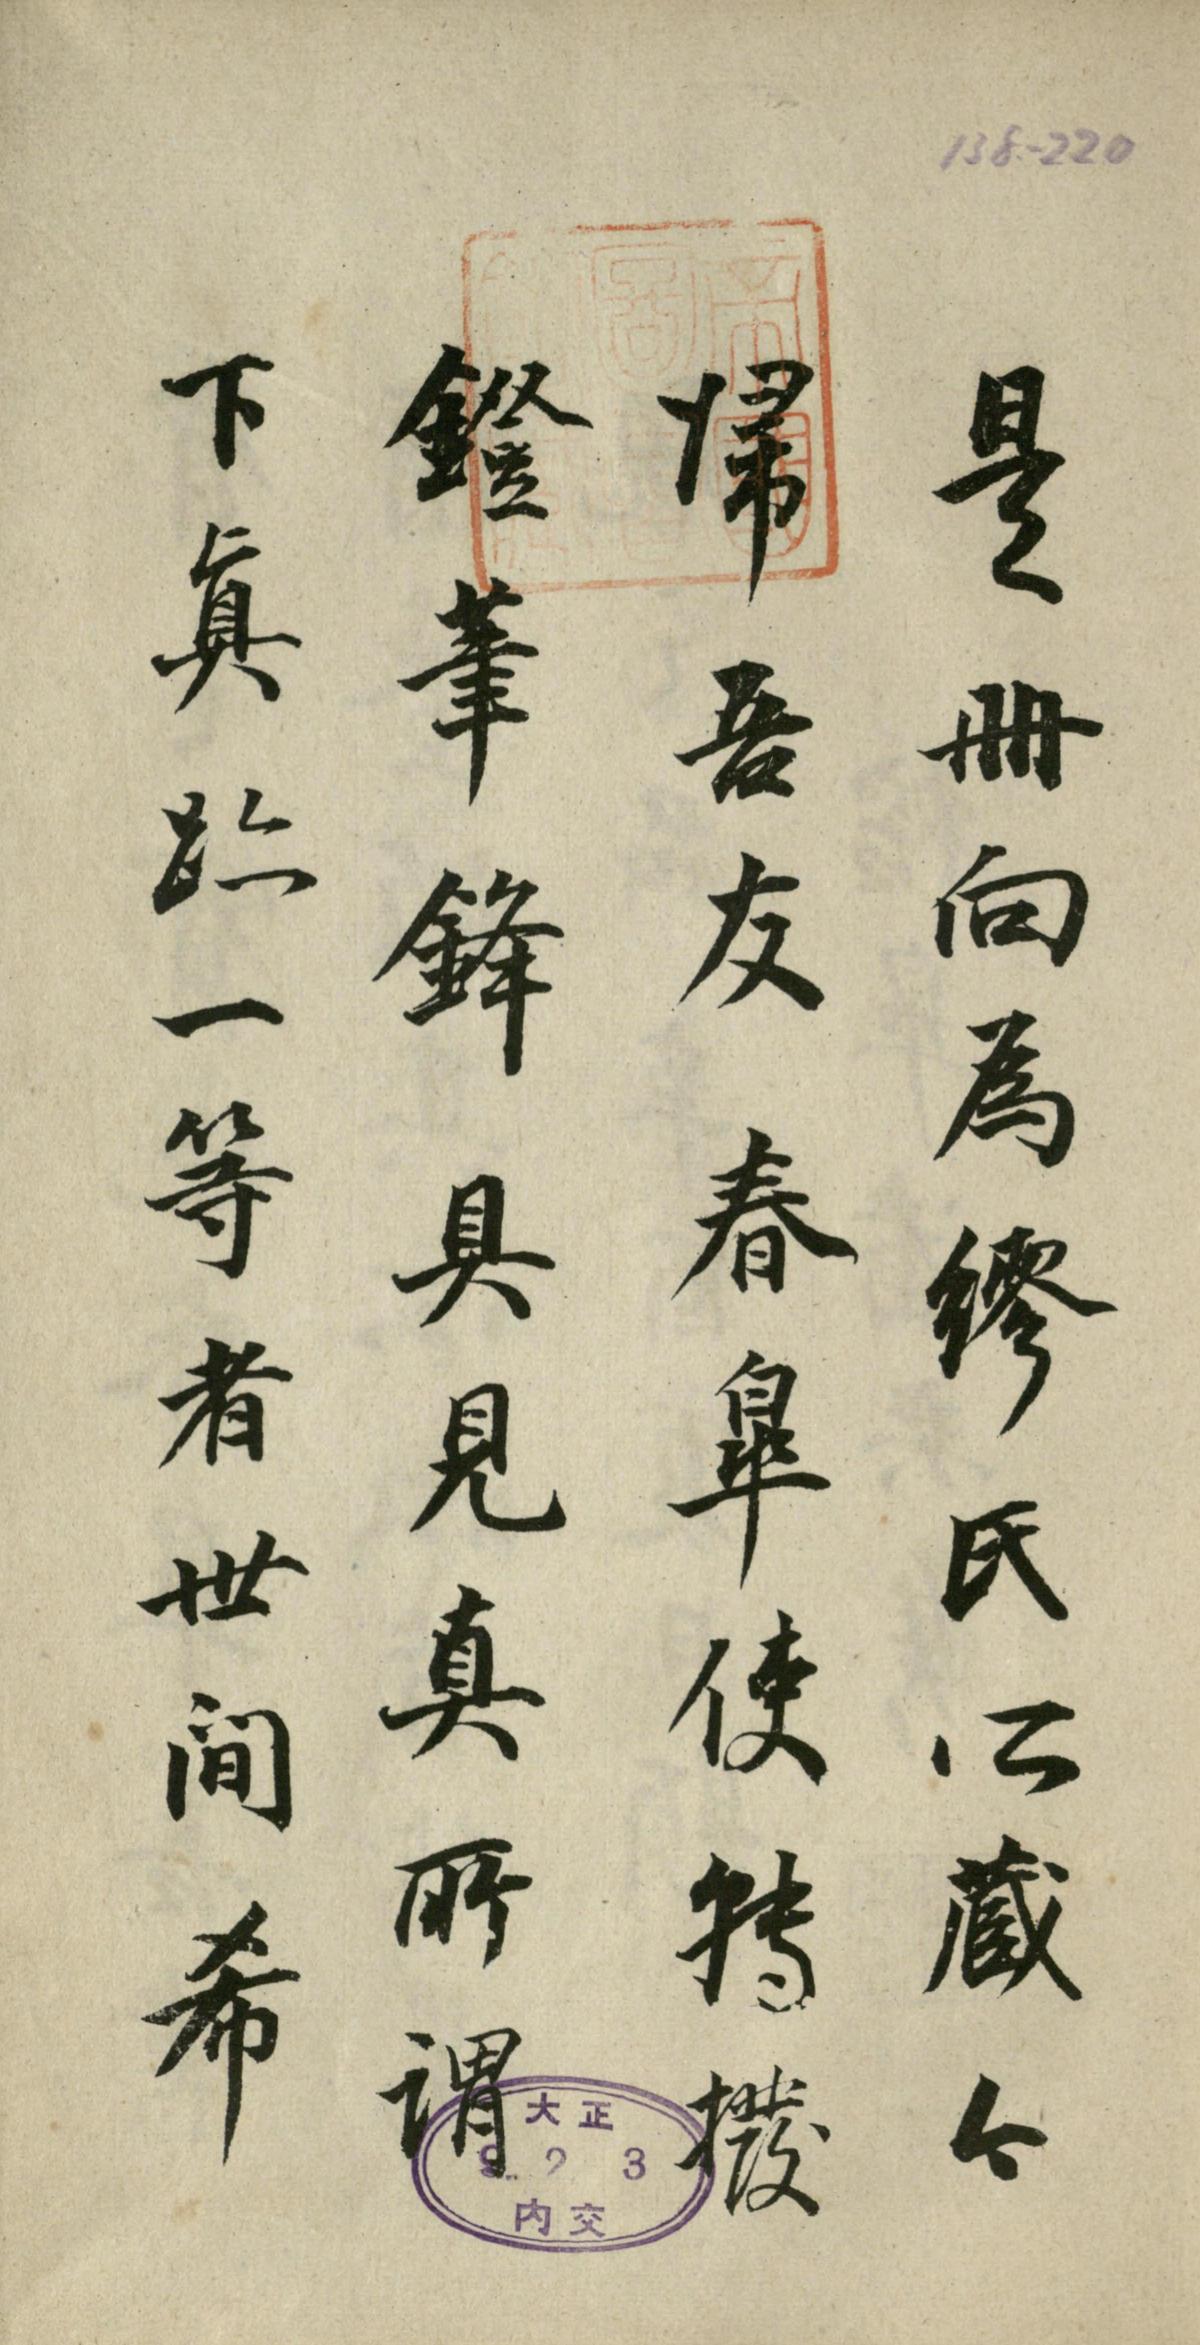 138-220
是冊向爲繆氏所藏今
帰吾友春皐使轉撥
鐙筆鋒具見真所謂
下眞跡一等者世間希
大正
9.2.3
内交